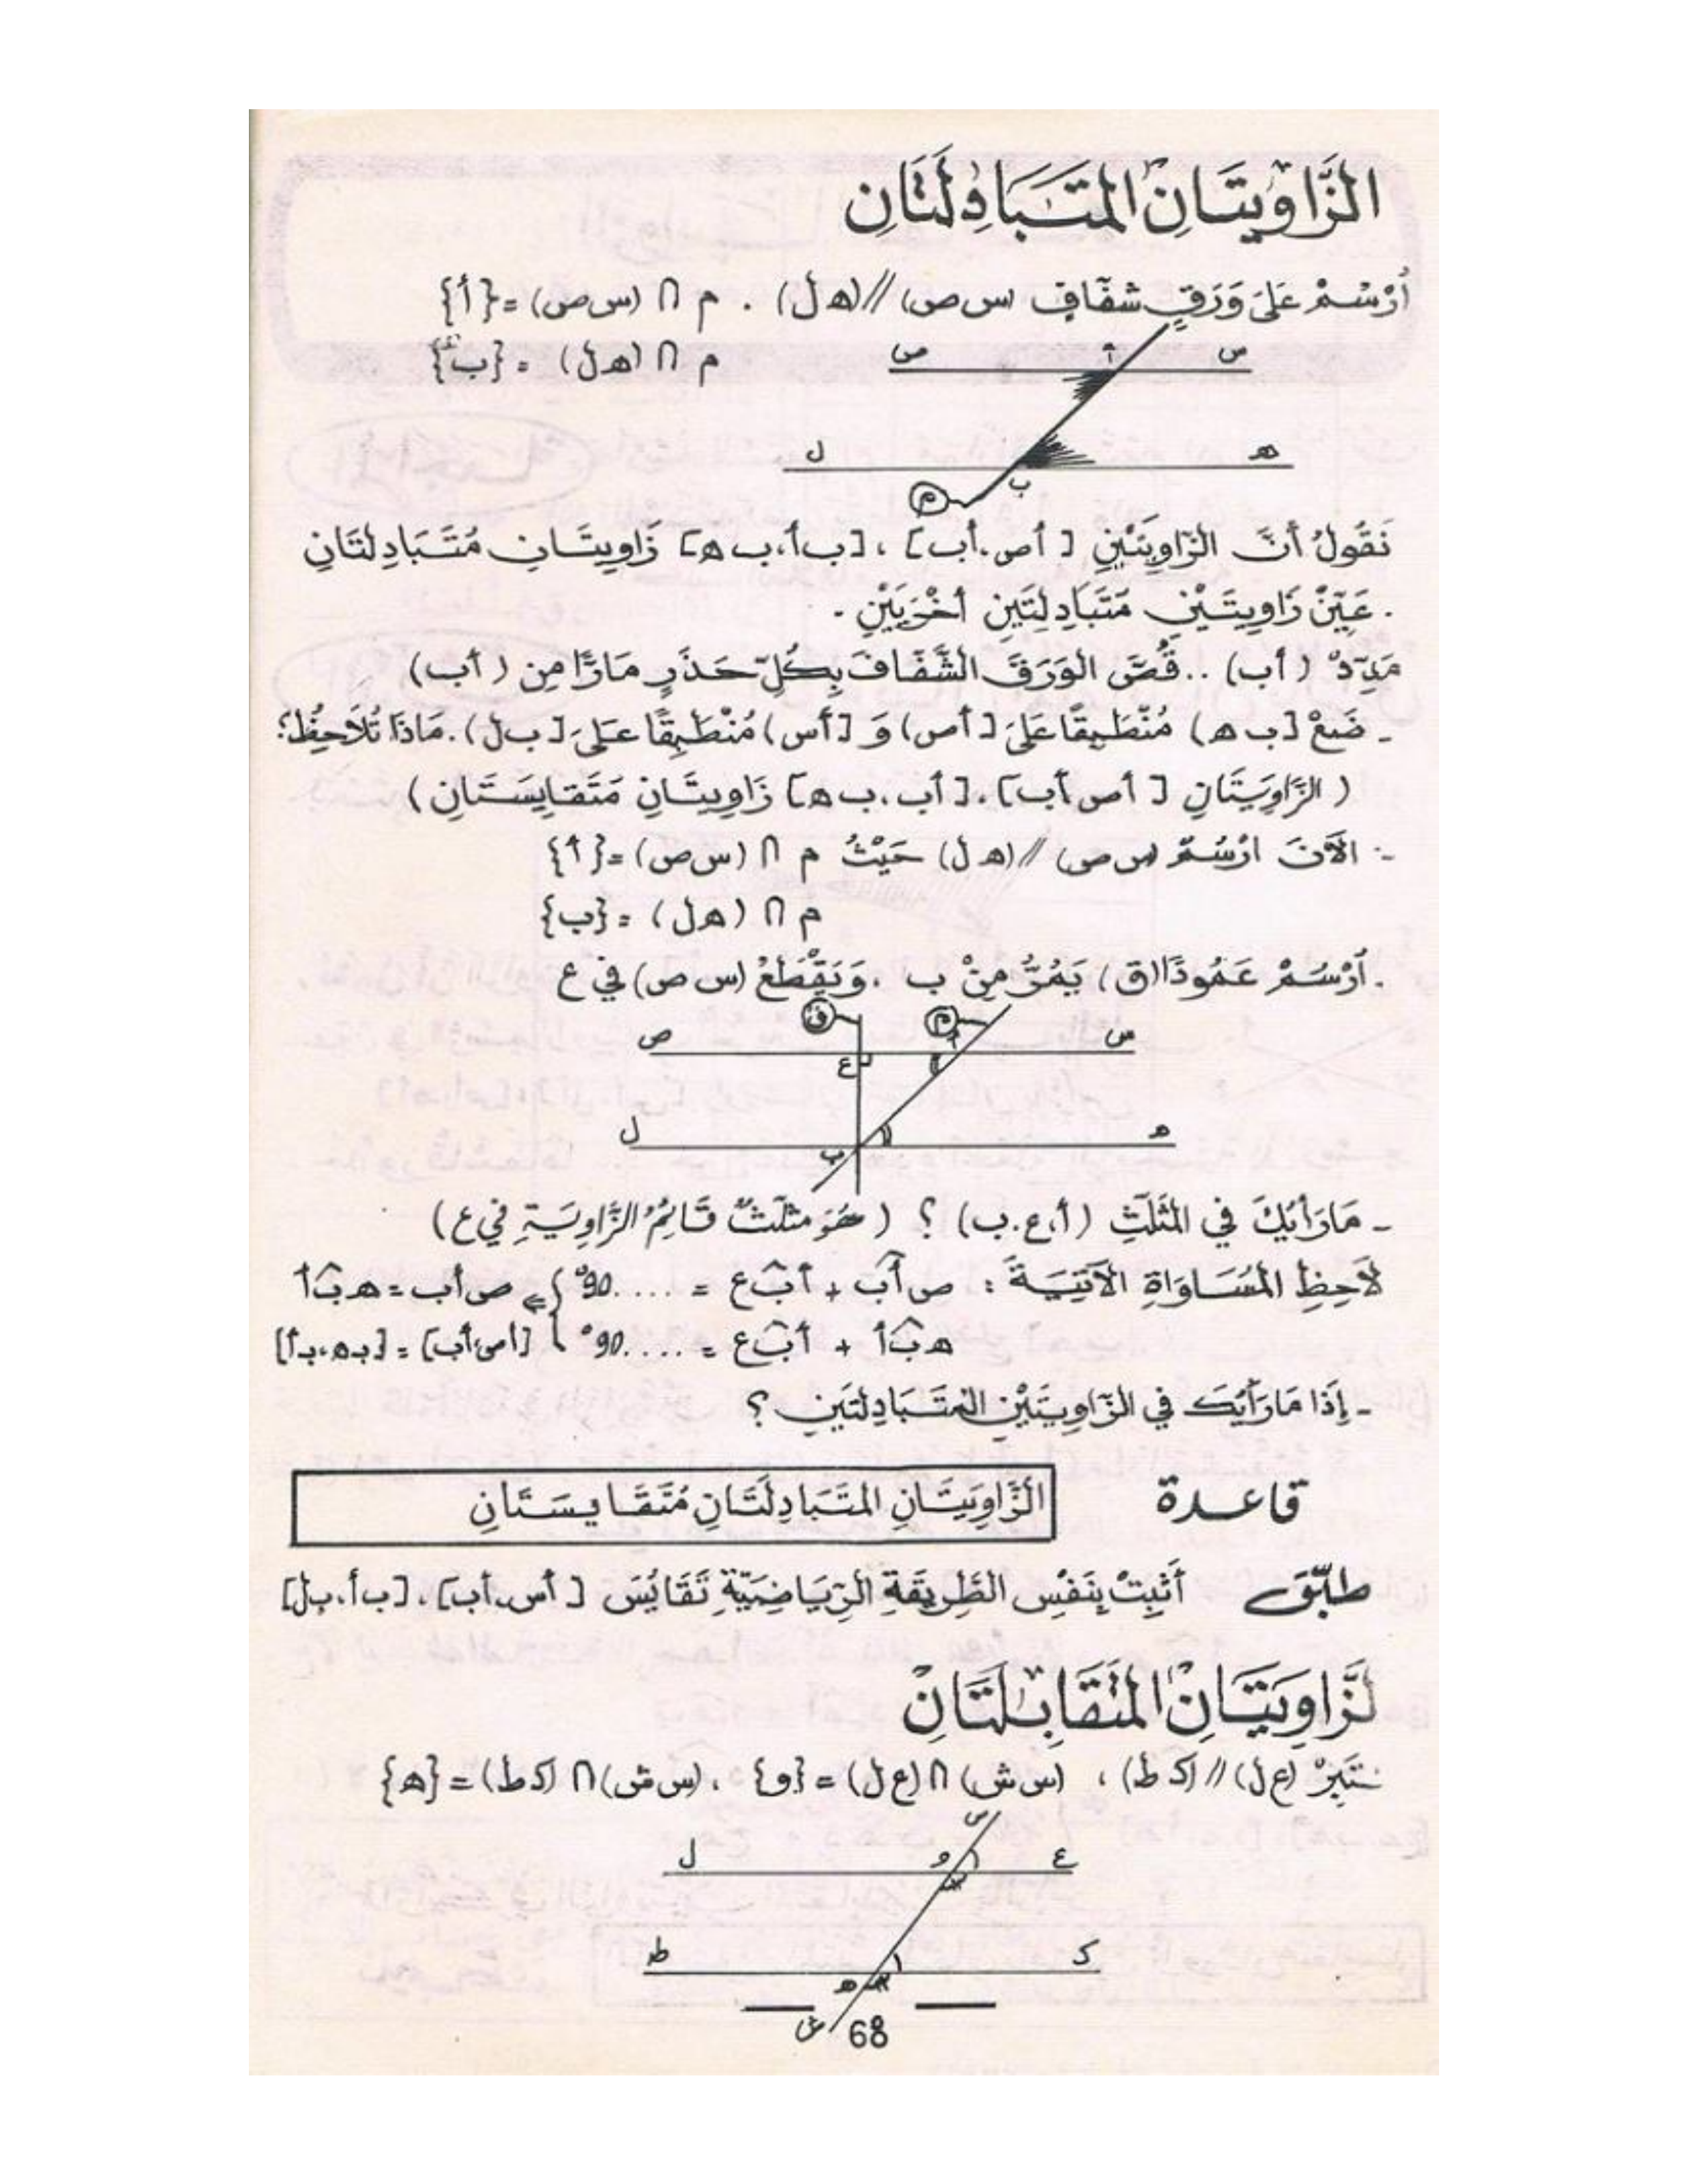 الزَّاوِيتَانِ المتَبَادِلَتَانِ
أُرْسُمْ عَلَى وَرَقٍ شفّافٍ (س ص) // (ه ل) . م ∩ (س ص) = {أ}
م ∩ (ه ل) = {ب}
ص أ س
ل ه
م ب
نَقُولُ أنَّ الزّاوِيَتَيْنِ [أص،أب] ، [ب أ،ب ه] زَاوِيتَانِ مُتَبَادِلتَانِ
. عَيِّنْ زَاوِيتَيْنِ مَتَبَادِلتَيَنِ أخْرَيَيْنِ .
مَدِّدْ (أب) .. قُصَّ الوَرَقَ الشَّفَافَ بِكُلِّ حَذَرٍ مَارًّا مِن (أب)
ـ ضَعْ [ب ه) مُنْطَبِقًا عَلَى [أص) وَ [أس) مُنْطَبِقًا عَلَى [ب ل). مَاذَا تُلاَحِظُ؟
(الزَّاوِيَتَانِ [أص،أب] ، [أب،ب ه] زَاوِيتَانِ مَتَقايِسَتَانِ)
ـ الآنَ ارْسُمْ (س ص) // (ه ل) حَيْثُ م ∩ (س ص) = {أ}
م ∩ (ه ل) = {ب}
. اُرْسُمْ عَمُودًا (ق) يَمُرُّ مِنْ ب ، وَيَقْطَعُ (س ص) في ع
ق م
ص أ س
ع
ل ه
ب
ـ مَا رَأيُكَ في المثَلَّثِ (أ،ع،ب) ؟ (هُوَ مثلَّثٌ قَائِمُ الزَّاوِيَةِ في ع)
لاَحِظِ المُسَاوَاةِ الآتِيَةَ : ص أ ب + أ ب ع = .... 90° } ⇐ ص أ ب = ه ب أ
ه ب أ + أ ب ع = .... 90° } [أص،أب] = [ب ه،ب أ]
ـ إِذَا مَا رَأيُكَ في الزَّاوِيَتَيْنِ المتَبَادِلتَيَنِ ؟
قاعدة الزَّاوِيَتَانِ المتَبَادِلَتَانِ مُتَقَايِسَتَانِ
طبّق أَثْبِتْ بِنَفْسِ الطَّرِيقَةِ الرِّيَاضِيَّةِ تَقَايُسَ [أس،أب] ، [ب أ،ب ل]
لزَّاوِيَتَانِ المتَقَابِلَتَانِ
ـتَبِرْ (ع ل) // (ك ط) ، (س ش) ∩ (ع ل) = {و} ، (س ش) ∩ (ك ط) = {ه}
س
ل و ع
ط ك
ه
ش
68